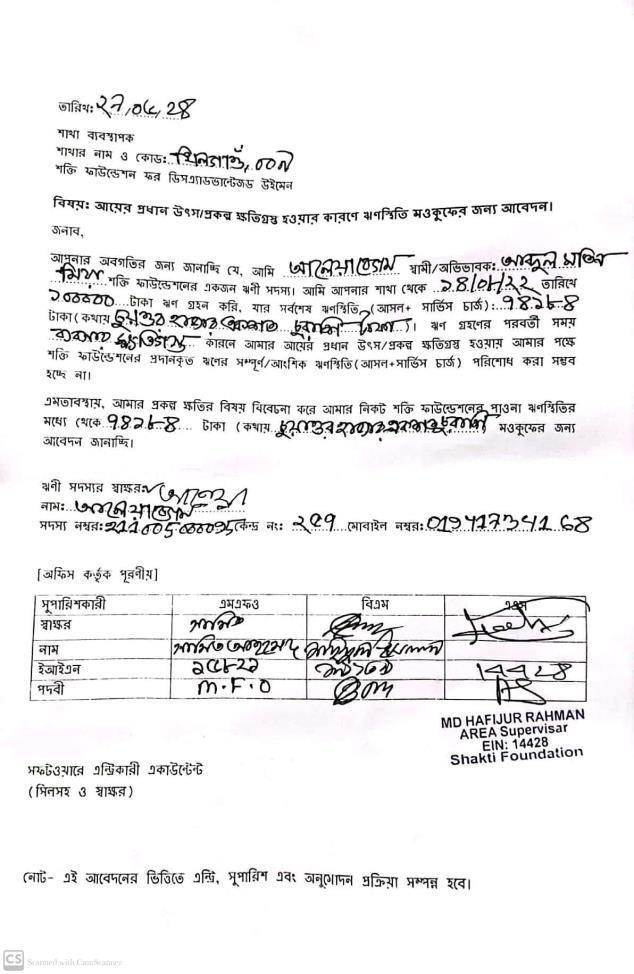 তারিখ: ২৭,০৮,২৪
শাখা ব্যবস্থাপক
শাখার নাম ও কোড: খিলগাঁও, ০০৭
শক্তি ফাউন্ডেশন ফর ডিসএ্যাডভান্টেজড উইমেন
বিষয়: আয়ের প্রধান উৎস/প্রকল্প ক্ষতিগ্রস্থ হওয়ার কারণে ঋণস্থিতি মওকুফের জন্য আবেদন।
জনাব,
আপনার অবগতির জন্য জানাচ্ছি যে, আমি আলেয়া বেগম স্বামী/অভিভাবক: আব্দুল মতিন
মিয়া শক্তি ফাউন্ডেশনের একজন ঋণী সদস্য। আমি আপনার শাখা থেকে তারিখে
১০০০০০ টাকা ঋণ গ্রহন করি, যার সর্বশেষ ঋণস্থিতি (আসল+ সার্ভিস চার্জ): ৭৪১৮৪
টাকা (কথায় চুয়াত্তর হাজার একশত চুরাশি টাকা)। ঋণ গ্রহণের পরবর্তী সময়
ব্যবসায় ক্ষতিগ্রস্ত কারনে আমার আয়ের প্রধান উৎস/প্রকল্প ক্ষতিগ্রস্থ হওয়ায় আমার পক্ষে
শক্তি ফাউন্ডেশনের প্রদানকৃত ঋণের সম্পূর্ণ/আংশিক ঋণস্থিতি (আসল+সার্ভিস চার্জ) পরিশোধ করা সম্ভব
হচ্ছে না।
এমতাবস্থায়, আমার প্রকল্প ক্ষতির বিষয় বিবেচনা করে আমার নিকট শক্তি ফাউন্ডেশনের পাওনা ঋণস্থিতির
মধ্যে থেকে ৭৪১৮৪ টাকা (কথায় চুয়াত্তর হাজার একশত চুরাশি) মওকুফের জন্য
আবেদন জানাচ্ছি।
ঋণী সদস্যর স্বাক্ষর: আলেয়া
নাম: আলেয়া বেগম
সদস্য নম্বর: কেন্দ্র নং: ২৫৭ মোবাইল নম্বর: 01941734168
[অফিস কর্তৃক পূরণীয়]
সুপারিশকারী এমএফও বিএম এএস
স্বাক্ষর সামিত
নাম সামিত আহমেদ
ইআইএন 14428
পদবী M.F.O AS
MD HAFIJUR RAHMAN
AREA Supervisar
EIN: 14428
Shakti Foundation
সফটওয়ারে এন্ট্রিকারী একাউন্টেন্ট
(সিলসহ ও স্বাক্ষর)
নোট- এই আবেদনের ভিত্তিতে এন্ট্রি, সুপারিশ এবং অনুমোদন প্রক্রিয়া সম্পন্ন হবে।
CS Scanned with CamScanner